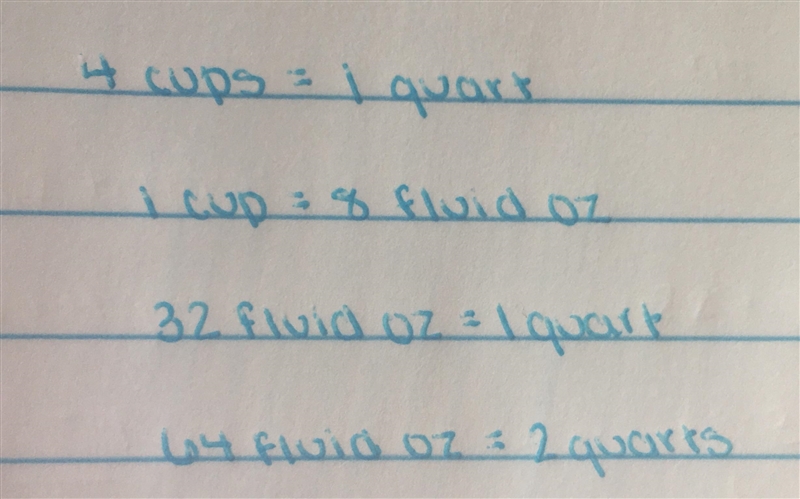 4 cups = 1 quart
1 cup = 8 fluid oz
32 fluid oz = 1 quart
64 fluid oz = 2 quarts